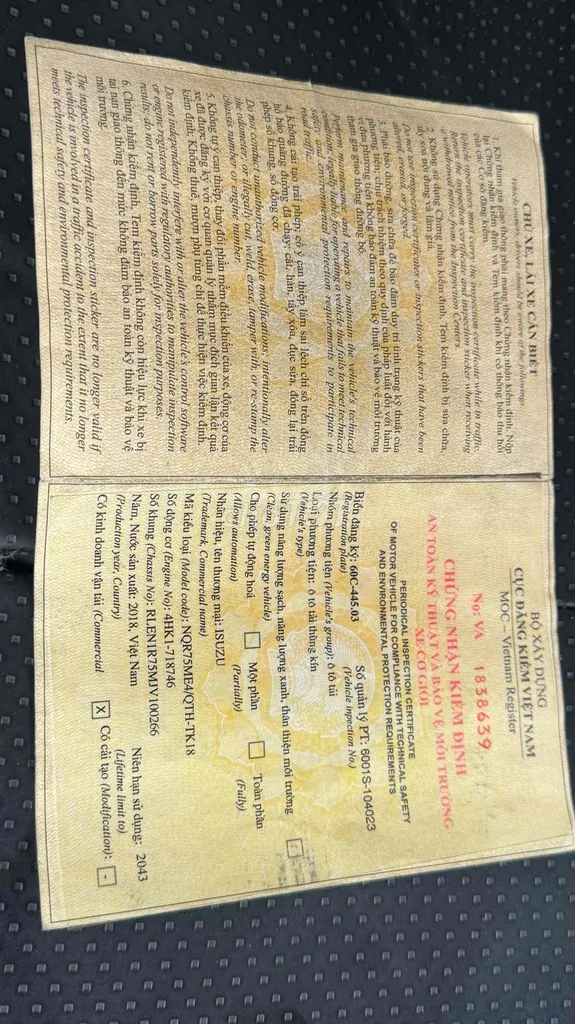 CHỦ XE, LÁI XE CẦN BIẾT
Vehicle owners and drivers should be aware of the following:
1. Khi tham gia giao thông phải mang theo Chứng nhận kiểm định. Nộp
lại Chứng nhận kiểm định và Tem kiểm định khi có thông báo thu hồi
của các Cơ sở đăng kiểm.
Vehicle operation must carry the inspection certificate while in traffic.
Return the inspection certificate and inspection sticker when receiving
a withdrawal notice from the Inspection Centers.
2. Không sử dụng Chứng nhận kiểm định, Tem kiểm định bị sửa chữa,
tẩy xoá nội dung và làm giả.
Do not use inspection certificates or inspection stickers that have been
altered, erased, or forged.
3. Phải bảo dưỡng, sửa chữa để bảo đảm duy trì tình trạng kỹ thuật của
phương tiện; chịu trách nhiệm theo quy định của pháp luật đối với hành
vi đưa phương tiện không bảo đảm an toàn kỹ thuật và bảo vệ môi trường
tham gia giao thông đường bộ.
Perform maintenance and repairs to maintain the vehicle's technical
condition; legally liable for operating a vehicle that fails to meet technical
safety and environmental protection requirements to participate in
road traffic.
4. Không cải tạo trái phép; cố ý can thiệp làm sai lệch chỉ số trên đồng
hồ báo quãng đường đã chạy; cắt, hàn, tẩy xóa, đục sửa, đóng lại trái
phép số khung, số động cơ.
Do not conduct unauthorized vehicle modifications; intentionally alter
the odometer; or illegally cut, weld, erase, tamper with, or re-stamp the
chassis number or engine number.
5. Không tự can thiệp, thay đổi phần mềm điều khiển của xe, động cơ của
xe đã được đăng ký với cơ quan quản lý nhằm mục đích gian lận kết quả
kiểm định; Không thuê, mượn phụ tùng chỉ để thực hiện việc kiểm định.
Do not independently interfere with or alter the vehicle's control software
or engine registered with regulatory authorities to manipulate inspection
results; do not rent or borrow parts solely for inspection purposes.
6. Chứng nhận kiểm định, Tem kiểm định không còn hiệu lực khi xe bị
tai nạn giao thông đến mức không đảm bảo an toàn kỹ thuật và bảo vệ
môi trường.
The inspection certificate and inspection sticker are no longer valid if
the vehicle is involved in a traffic accident to the extent that it no longer
meets technical safety and environmental protection requirements.
BỘ XÂY DỰNG
CỤC ĐĂNG KIỂM VIỆT NAM
MOC – Vietnam Register
No: VA 1838639
CHỨNG NHẬN KIỂM ĐỊNH
AN TOÀN KỸ THUẬT VÀ BẢO VỆ MÔI TRƯỜNG
XE CƠ GIỚI
PERIODICAL INSPECTION CERTIFICATE
OF MOTOR VEHICLE FOR COMPLIANCE WITH TECHNICAL SAFETY
AND ENVIRONMENTAL PROTECTION REQUIREMENTS
Biển đăng ký: 60C-445.03 Số quản lý PT: 6001S-104023
(Registration plate) (Vehicle inpection No.)
Nhóm phương tiện (Vehicle's group): ô tô tải
Loại phương tiện: ô tô tải thùng kín
(Vehicle's type)
Sử dụng năng lượng sạch, năng lượng xanh, thân thiện môi trường
(Clean, green energy vehicle)
Cho phép tự động hoá Một phần Toàn phần
(Allows automation) (Partially) (Fully)
Nhãn hiệu, tên thương mại: ISUZU
(Trademark, Commercial name)
Mã kiểu loại (Model code): NQR75ME4/QTH-TK18
Số động cơ (Engine No): 4HK1-718746
Số khung (Chassis No): RLEN1R75MJV100266
Năm, Nước sản xuất: 2018, Việt Nam Niên hạn sử dụng: 2043
(Production year, Country) (Lifetime limit to)
Có kinh doanh vận tải (Commercial X Có cải tạo (Modification): -